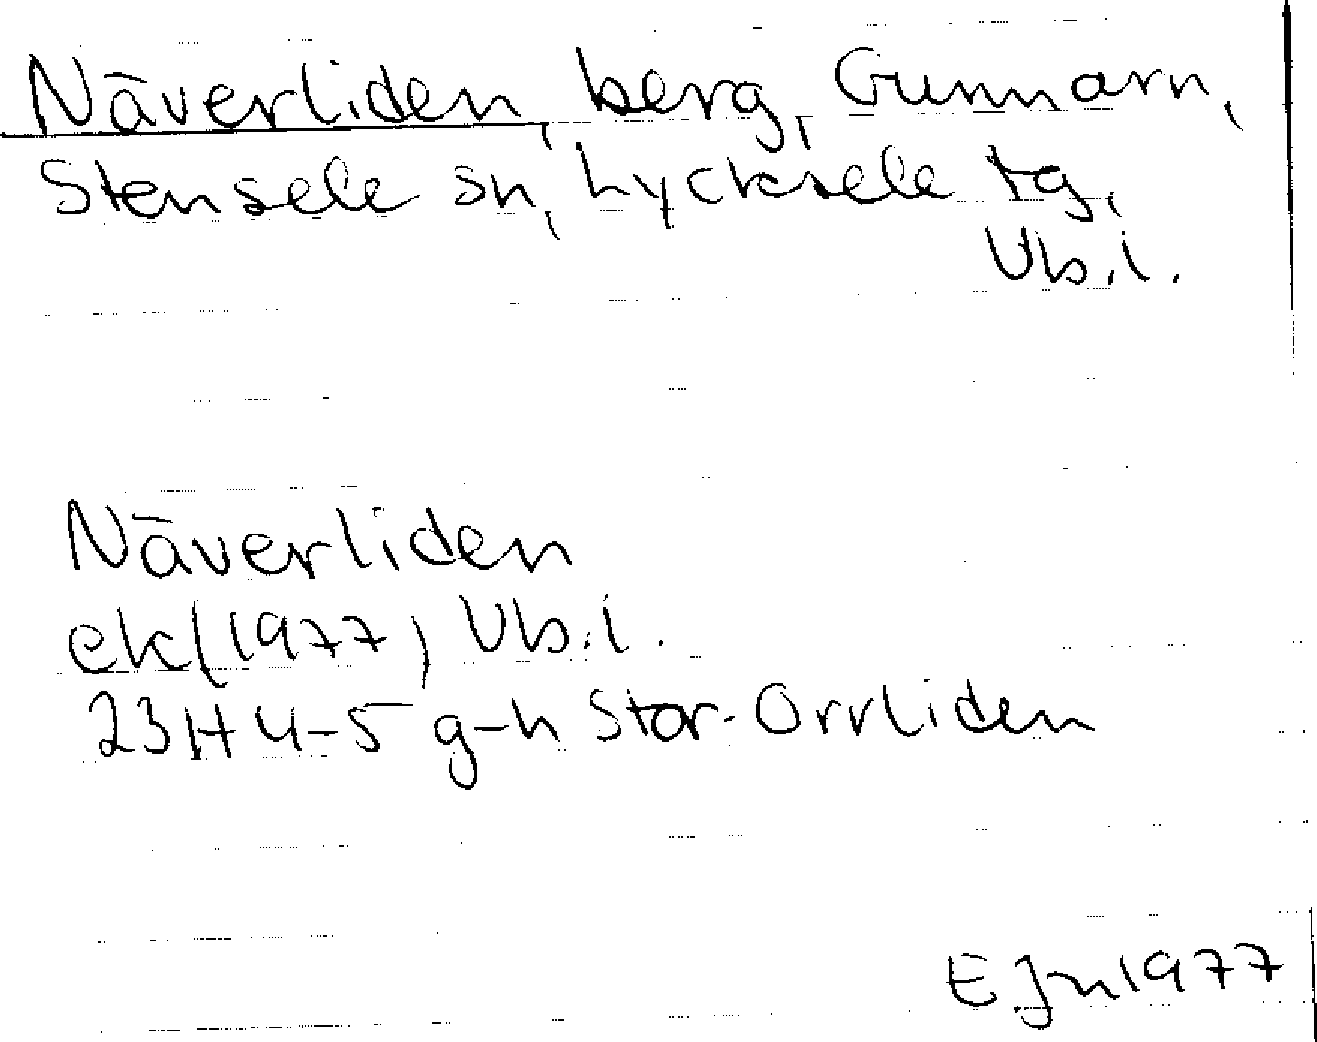 Näverliden, berg, Gunnarn,
Stensele sn, Lycksele tg,
Vb.l.
Näverliden
ek(1977) Vb.l.
23H 4-5 g-h Stor-Orrliden
E Jn 1977